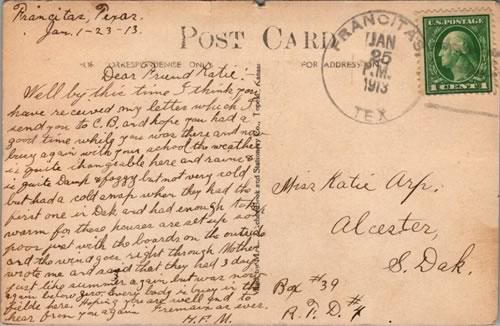 Francitas, Texas.
Jan. 1-23-13.
POST CARD
FOR CORRESPONDENCE ONLY
FOR ADDRESS ONLY
FRANCITAS
JAN
25
P.M.
1913
TEX
U.S. POSTAGE
1 CENT 1
Dear Friend Katie:-
Well by this time I think you
have received my letter which I
send you to C.B. and hope you had a
good time while you was there and now
busy again with your school. the weather
is quite changeable here and rains &
is quite damp & foggy but not very cold
but had a cold snap when they had the
first one in Dak. and had enough to
warm for these houses are set up so
poor just with the boards on the outside
and the wind goes right through Mother
wrote me and said that they had 3 days
just like summer again but was now
again below zero. Every body is busy in the
here. Hoping you are well and to
hear from you again I remain as ever.
H.F.M.
Miss Katie Arp.
Alcester,
S. Dak.
Box #39
R.F.D. #1